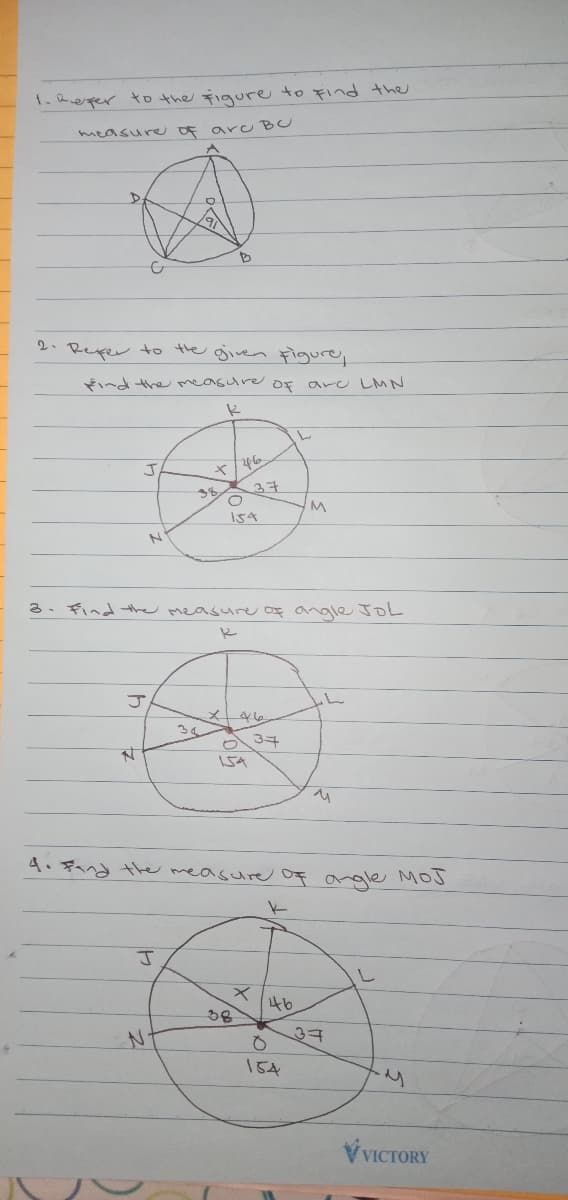 1. Refer to the figure to find the
measure of arc BC
A
D
O
91
C
B
2. Refer to the given figure,
find the measure of arc LMN
K
L
J
x 46
38 37
O
M
154
N
3. Find the measure of angle JOL
K
J
L
x 46
38
O 37
N
154
M
4. Find the measure of angle MOJ
K
J
L
x
46
38
37
N
O
154
M
VICTORY